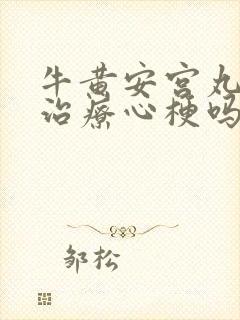 牛黄安宫丸
治疗心梗吗
邹松